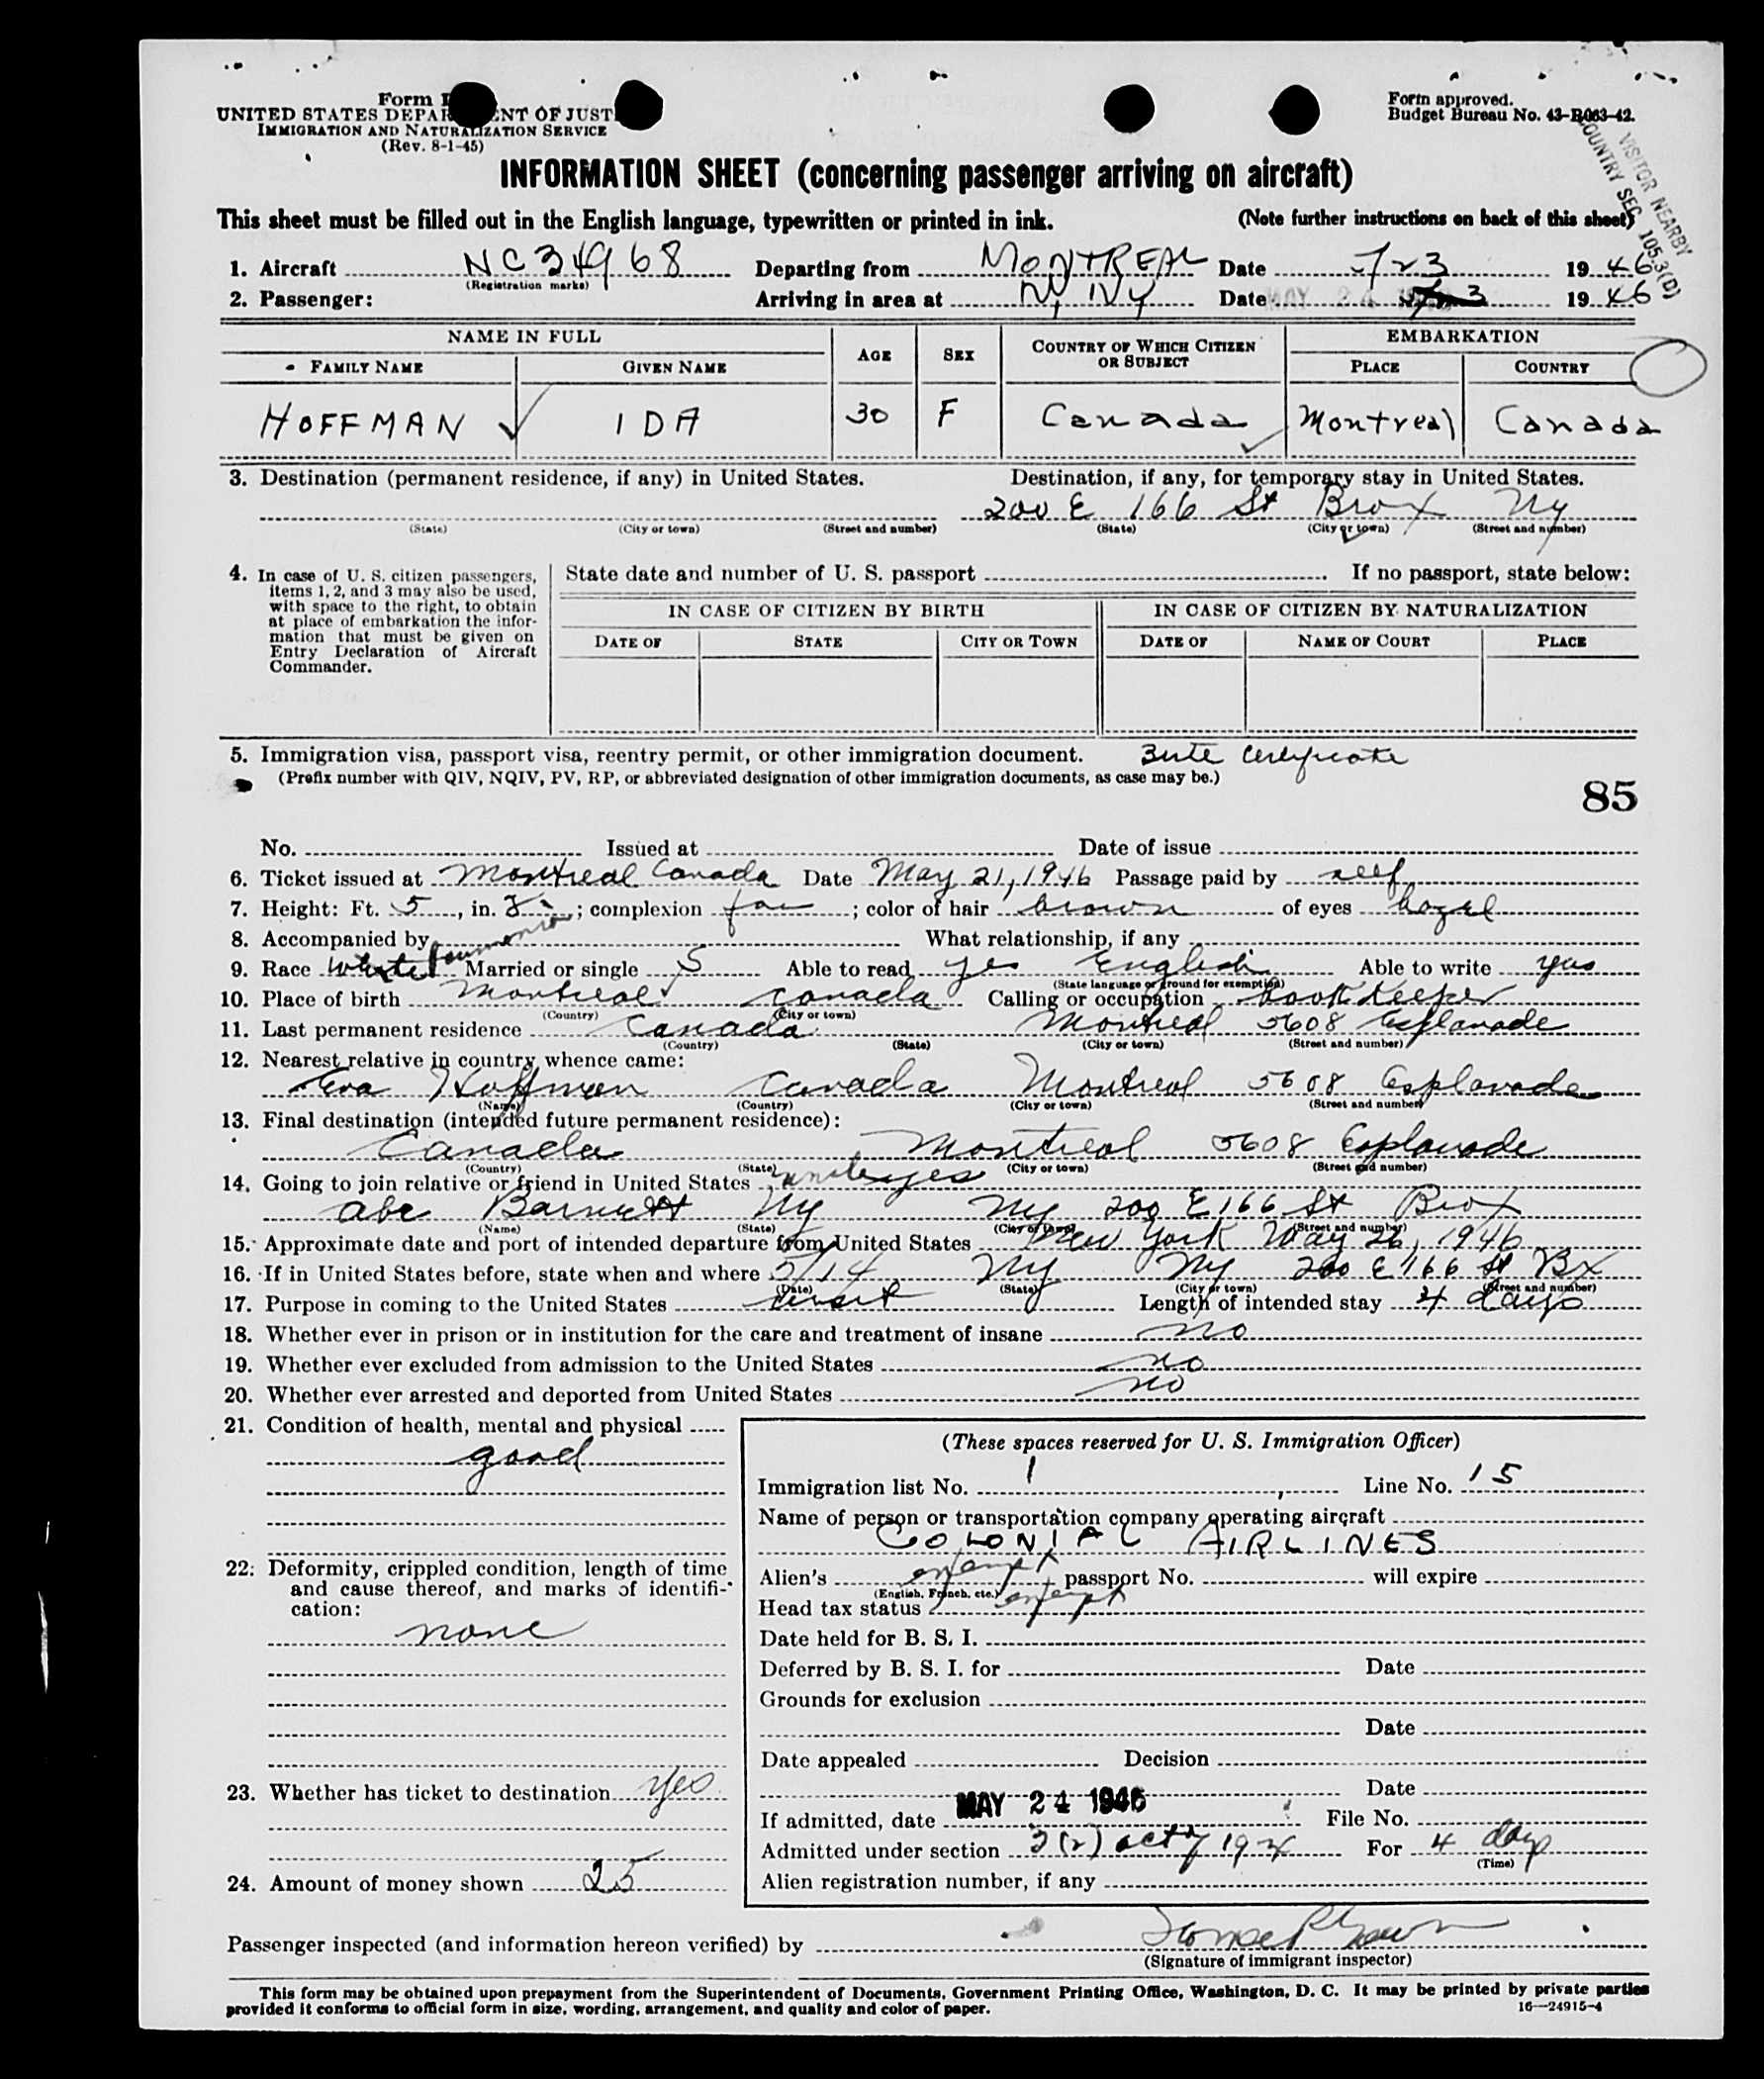 Form I
UNITED STATES DEPAR ENT OF JUST
IMMIGRATION AND NATURALIZATION SERVICE
(Rev. 8-1-45)
Form approved.
Budget Bureau No. 43-R063-42.
VISITOR NEARBY
COUNTRY SEC 105.3(D)
INFORMATION SHEET (concerning passenger arriving on aircraft)
This sheet must be filled out in the English language, typewritten or printed in ink. (Note further instructions on back of this sheet)
1. Aircraft NC34968 Departing from MONTREAL Date 1946
(Registration marks)
2. Passenger: Arriving in area at Date MAY 24 1946
NAME IN FULL AGE SEX COUNTRY OF WHICH CITIZEN OR SUBJECT EMBARKATION
FAMILY NAME GIVEN NAME PLACE COUNTRY
HOFFMAN IDA 30 F Canada Montreal Canada
3. Destination (permanent residence, if any) in United States. Destination, if any, for temporary stay in United States.
200 E 166 St Brox Ny
(State) (City or town) (Street and number) (State) (City or town) (Street and number)
4. In case of U. S. citizen passengers,
items 1, 2, and 3 may also be used,
with space to the right, to obtain
at place of embarkation the infor-
mation that must be given on
Entry Declaration of Aircraft
Commander.
State date and number of U. S. passport If no passport, state below:
IN CASE OF CITIZEN BY BIRTH IN CASE OF CITIZEN BY NATURALIZATION
DATE OF STATE CITY OR TOWN DATE OF NAME OF COURT PLACE
5. Immigration visa, passport visa, reentry permit, or other immigration document. certificate
(Prefix number with QIV, NQIV, PV, RP, or abbreviated designation of other immigration documents, as case may be.)
85
No. Issued at Date of issue
6. Ticket issued at Montreal Canada Date May 21, 1946 Passage paid by self
7. Height: Ft. 5, in. ; complexion ; color of hair brown of eyes hazel
8. Accompanied by What relationship, if any
9. Race White Married or single S Able to read yes English Able to write yes
(State language or ground for exemption)
10. Place of birth Montreal Canada Calling or occupation bookkeeper
(Country) (City or town)
11. Last permanent residence Canada Montreal 5608 Esplanade
(Country) (State) (City or town) (Street and number)
12. Nearest relative in country whence came:
Eva Hoffman Canada Montreal 5608 Esplanade
(Name) (Country) (City or town) (Street and number)
13. Final destination (intended future permanent residence):
Canada Montreal 5608 Esplanade
(Country) (State) (City or town) (Street and number)
14. Going to join relative or friend in United States yes
Abe Barnett Ny Ny 200 E 166 St Brox
(Name) (State) (City or town) (Street and number)
15. Approximate date and port of intended departure from United States New York May 26, 1946
16. If in United States before, state when and where 5/14 Ny Ny 200 E 166 St Bx
(Date) (State) (City or town) (Street and number)
17. Purpose in coming to the United States visit Length of intended stay 4 days
18. Whether ever in prison or in institution for the care and treatment of insane no
19. Whether ever excluded from admission to the United States no
20. Whether ever arrested and deported from United States no
21. Condition of health, mental and physical
good
22. Deformity, crippled condition, length of time
and cause thereof, and marks of identifi-
cation:
none
23. Whether has ticket to destination yes
24. Amount of money shown 25
(These spaces reserved for U. S. Immigration Officer)
Immigration list No. 1 Line No. 15
Name of person or transportation company operating aircraft
COLONIAL AIRLINES
Alien's exempt passport No. will expire
(English, French, etc.)
Head tax status exempt
Date held for B. S. I.
Deferred by B. S. I. for Date
Grounds for exclusion
Date
Date appealed Decision
Date
If admitted, date MAY 24 1946 File No.
Admitted under section 3(2) act of 1924 For 4 days
(Time)
Alien registration number, if any
Passenger inspected (and information hereon verified) by
(Signature of immigrant inspector)
This form may be obtained upon prepayment from the Superintendent of Documents, Government Printing Office, Washington, D. C. It may be printed by private parties
provided it conforms to official form in size, wording, arrangement, and quality and color of paper.
16—24915-4